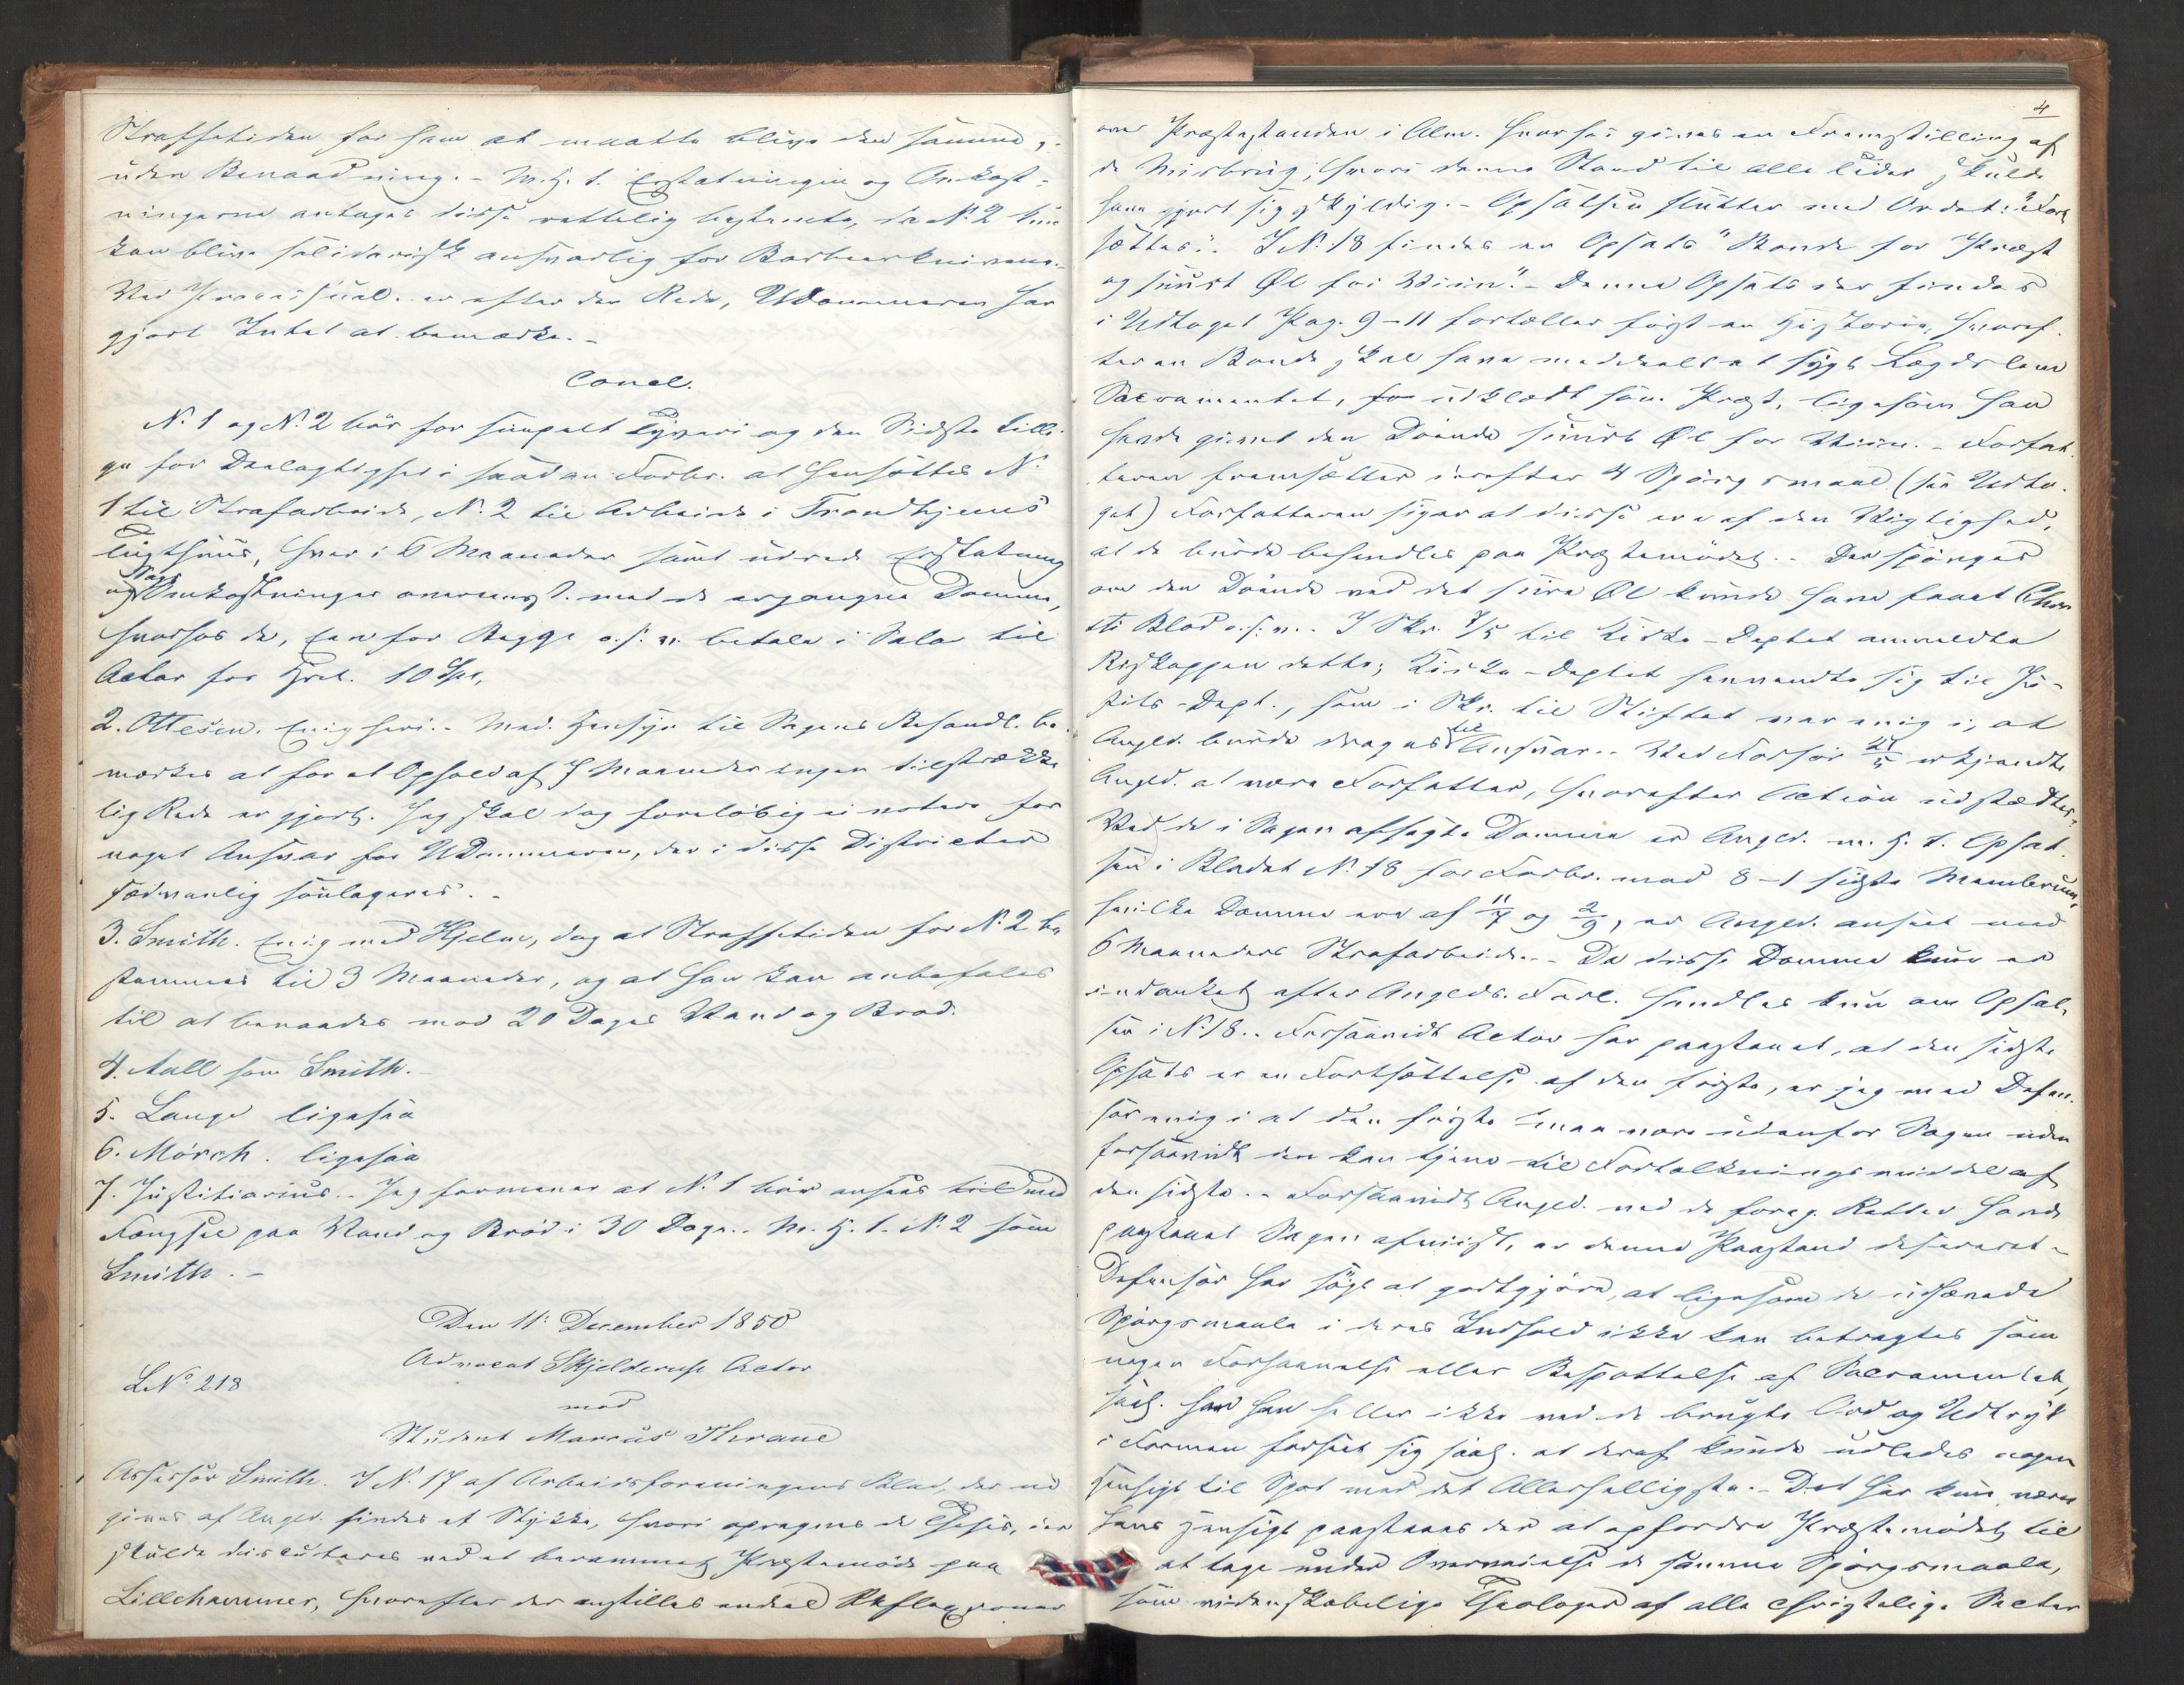 Straffetiden for ham at maatte blive den samme,
uden Benaadning. – M. H. t. Erstatningen og Omkost-
ningerne antages disse rettelig bestemte, da N. 2 kun
kan blive solidarisk ansvarlig for Barberknivene.
Ved Procesfuel. er efter den Rede, UDommeren har
gjort Intet at bemærke. –
Concl.
N. 1 og N. 2 bör for simpelt Tyveri og den Sidste tilli-
ge for Deelagtighed i saadan Forbr. at hensættes N.
1 til Strafarbeide, N. 2 til Arbeide i Trondhjems
Tugthuus, hver i 6 Maaneder samt udrede Erstatning
og Sags Omkostninger overeenst. med de ergangne Domme,
hvorhos de, Een for Begge o. s. v. betale i Salar til
Actor for Hret. 10 Spd.
2. Ottesen. Enig heri. – Med Hensyn til Sagens Behandl. be-
mærkes at for et Ophold af 7 Maaneder ingen tilstrække-
lig Rede er gjort. Jeg skal dog foreløbig ei votere for
noget Ansvar for UDommeren, der i disse Districter
sædvanlig
3. Smith. Enig med Hjelm, dog at Straffetiden for N. 2 be-
stemmes til 3 Maaneder, og at han kan anbefales
til at benaades med 20 Dages Vand og Brød.
4. Aall som Smith. –
5. Lange ligesaa
6. Mörch. ligesaa
7. Justitiarius. – Jeg formener at N. 1 bör ansees med
Fængsel paa Vand og Bröd i 30 Dage. M. H. t. N. 2 som
Smith. –
Den 11. December 1850
Advocat Skjelderup Actor
L. No 218
mod
Student Marcus Thrane
Assessor Smith. I N. 17 af Arbeiderforeningens Blad, der ud-
gives af Angld. findes et Stykke, hvori opregnes de Theses, der
skulde discuteres ved et berammet Præstemöde paa
Lillehammer, hvorefter der anstilles endeel Reflexioner
4
over Præstestanden i Alm. hvorhos gives en Fremstilling af
de Misbrug, hvori denne Stand til alle Tider skulde
have gjort sig skyldig. – Opsatsen slutter med Ordet: "Fort-
sættes". I N. 18 findes en Opsats "Bonde for Præst
og suurt Øl for Viin". – Denne Opsats der findes
i Udtoget Pag. 9–11 fortæller först en Historie, hvoref-
ter en Bonde skal have meddeelt et sygt Lægdslem
Sacramentet, udklædt som Præst, ligesom han
havde givet den Döende suurt Øl for Viin. – Forfat-
teren fremsætter derefter 4 Spörgsmaal (see Udto-
get) Forfatteren siger at disse ere af den Vigtighed,
at de burde behandles paa Præstemödet. – Der spörges
om den Döende ved det sure Øl kunde have faaet Chri-
sti Blod o. s. v. – I Skr. 7/5 til Kirke-Deptet anmeldte
Biskoppen dette; Kirke-Deptet henvendte sig til Ju-
stits-Dept., som i Skr. til Stiftet var enig i, at
Angld. burde drages til Ansvar. – Ved Forhör 24/5 erkjendte
Angld. at være Forfatter, hvorefter Action udstædtes.
Ved de i Sagen afsagte Domme er Angld. m. H. t. Opsat-
sen i Bladet N. 18 for Forbr. mod 8–1 sidste Membrum,
hvilke Domme ere af 11/7 og 2/9, er Angld. anseet med
6 Maaneders Strafarbeide. – Da disse Domme kun er
indanket efter Anglds. Forl. handles kun om Opsat-
sen i N. 18. – Forsaavidt Actor har paastaaet, at den sidste
Opsats er en Fortsættelse af den förste, er jeg med Defen-
sor enig i at den förste maa være udenfor Sagen uden
forsaavidt den kan tjene til Fortolkningsmiddel af
den sidste. – Forsaavidt Angld. ved de foreg. Retter havde
paastaaet Sagen afviist, er denne Paastand
Defensor har sögt at godtgjöre, at ligesom de udhævede
Spörgsmaale i deres Indhold ikke kan betragtes som
nogen Forhaanelse eller Bespottelse af Sacramentet,
saal. har han heller ikke ved de brugte Ord og Udtryk
i Formen forseet sig saal. at deraf kunde udledes nogen
Hensigt til Spot med det Allerhelligste. – Det har kun været
hans Hensigt paastaaes der at opfordre Præstemödet til
at tage under Overveielse de samme Spörgsmaale,
som videnskabelige Theologer af alle christelige Secter